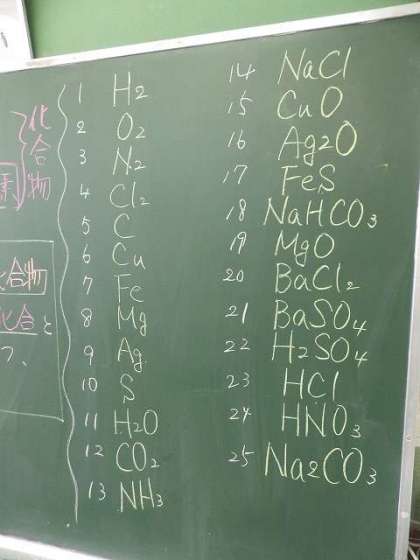 化合物
化合物
化合と
1 H₂
2 O₂
3 N₂
4 Cl₂
5 C
6 Cu
7 Fe
8 Mg
9 Ag
10 S
11 H₂O
12 CO₂
13 NH₃
14 NaCl
15 CuO
16 Ag₂O
17 FeS
18 NaHCO₃
19 MgO
20 BaCl₂
21 BaSO₄
22 H₂SO₄
23 HCl
24 HNO₃
25 Na₂CO₃